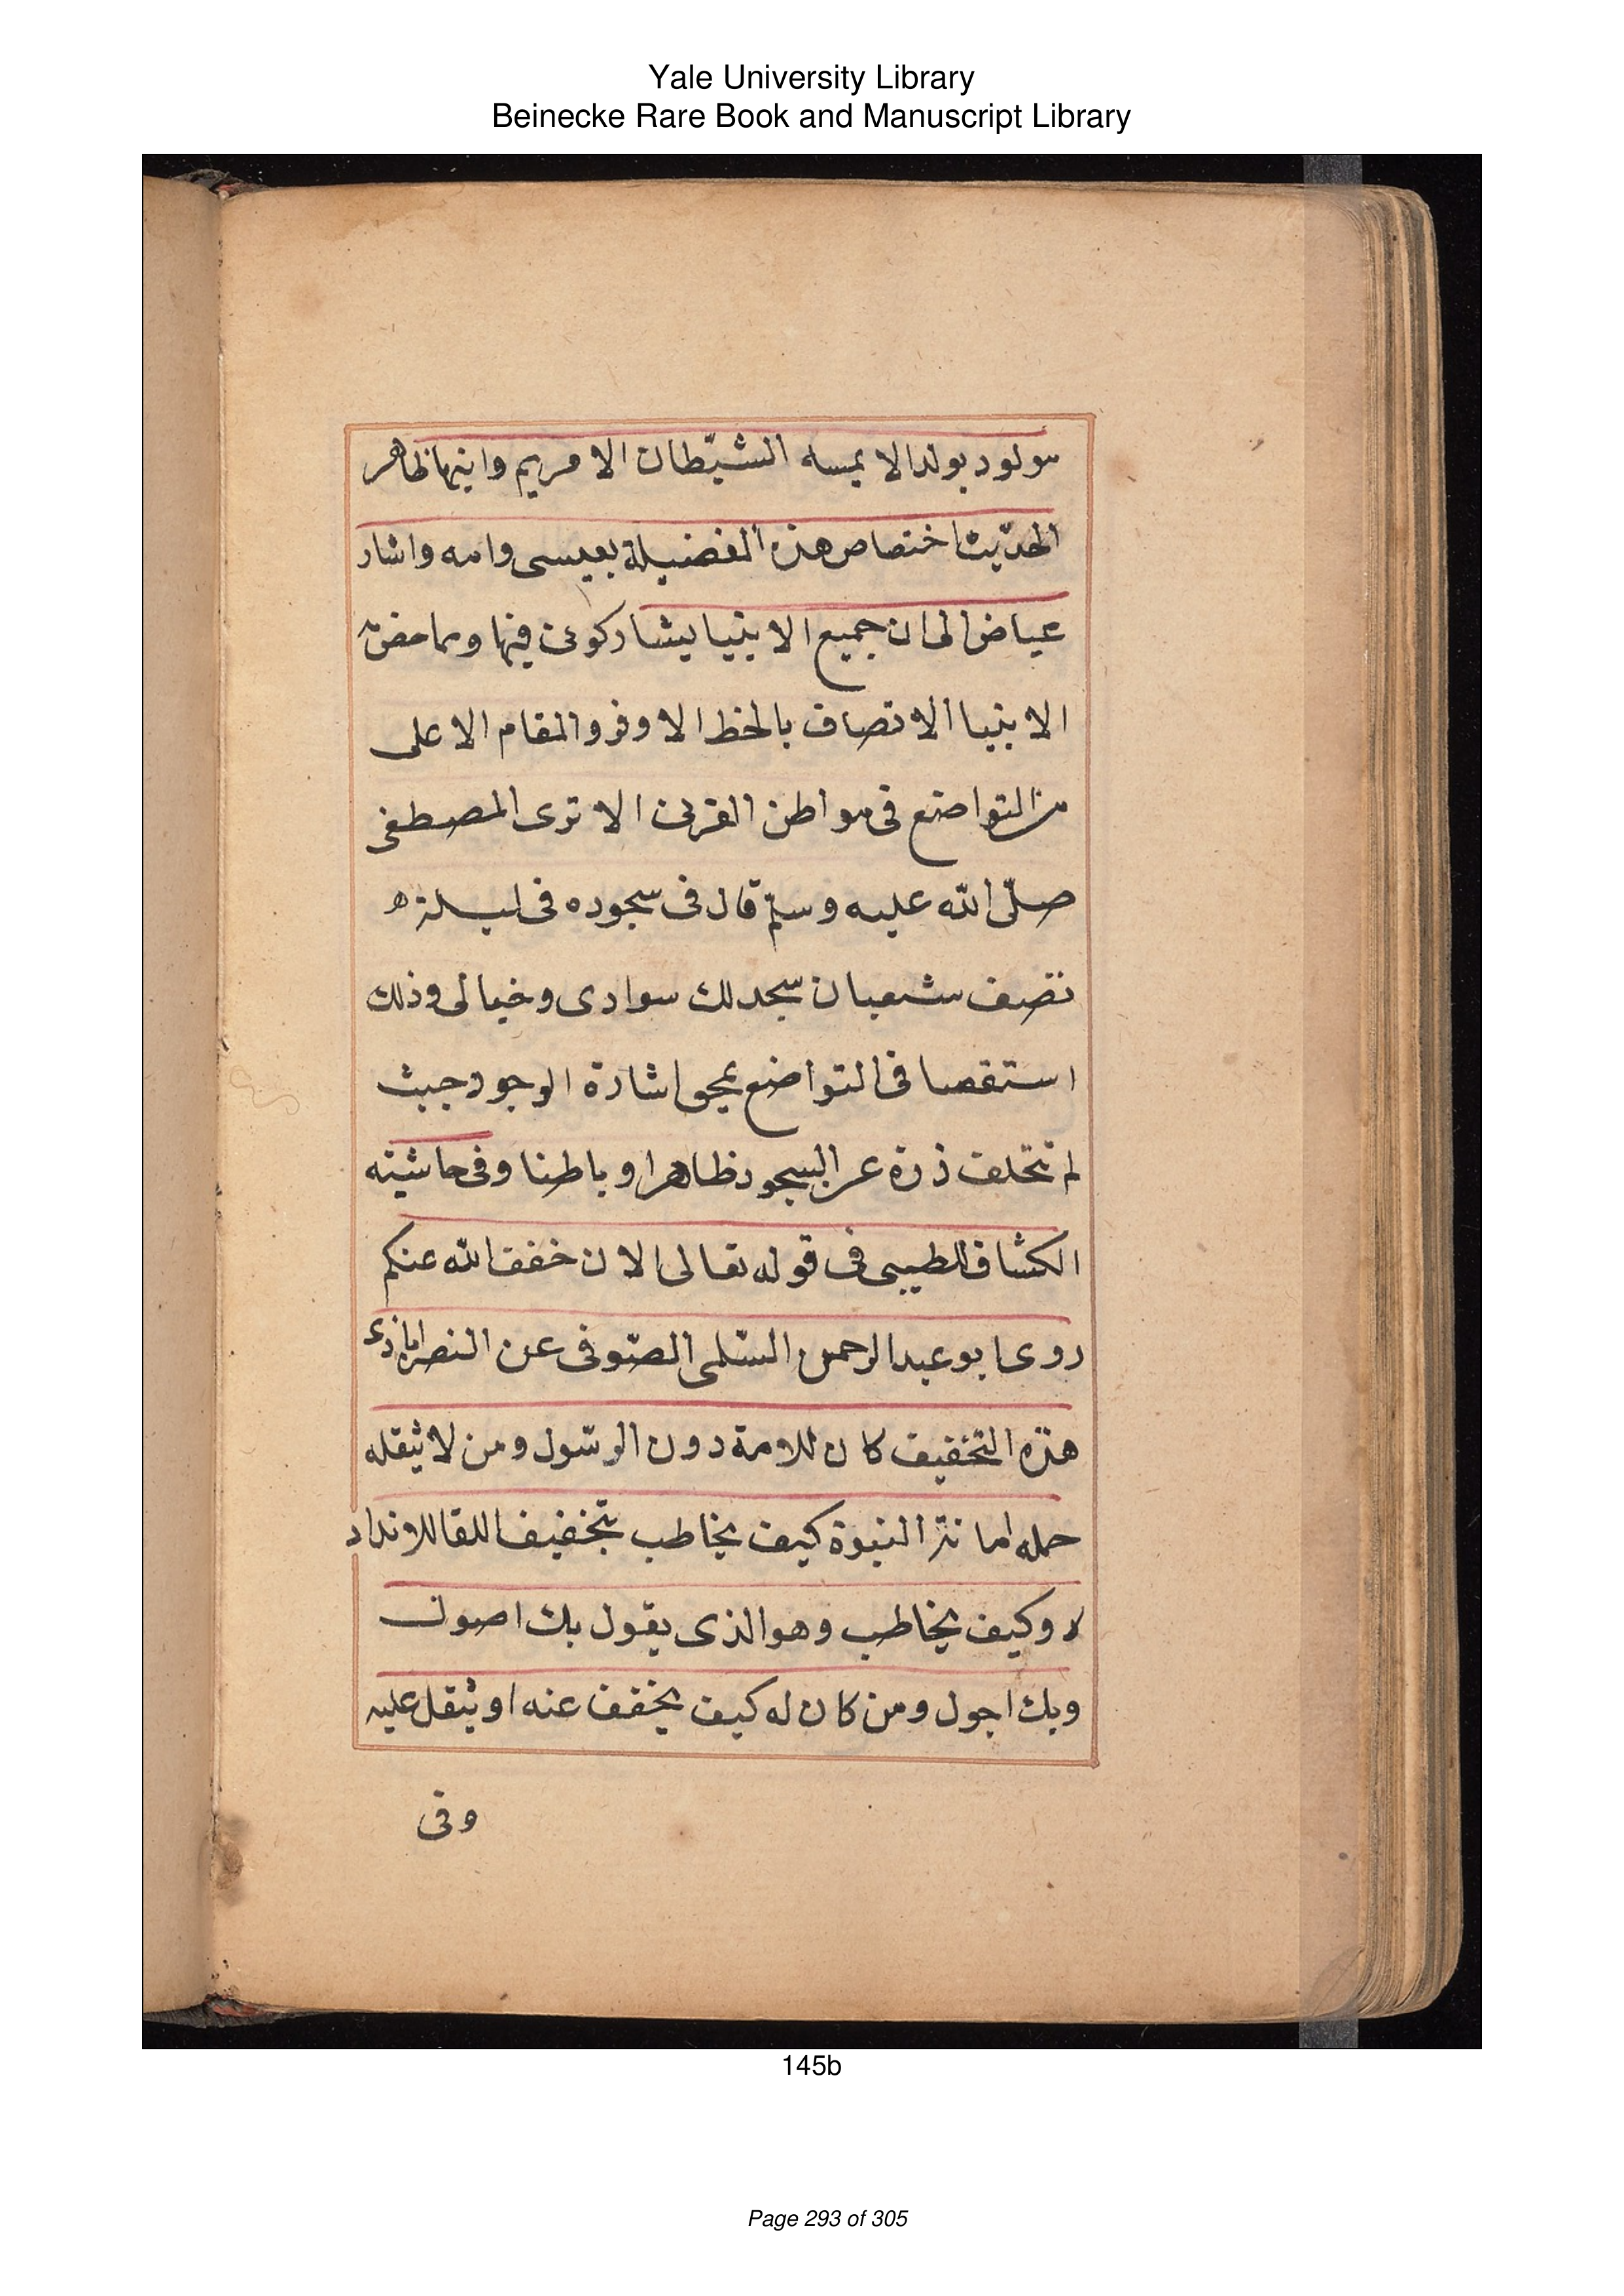 Yale University Library
Beinecke Rare Book and Manuscript Library
مولود يولد الا يمسه الشيّطان الا مريم وابنها ظاهر
الحدّيث اختصاص هذه الفضيلة بعيسى وامه واشار
عياض الى ان جميع الانبيا يشاركونه فيها ومما
الانبيا الاتصاف بالحظ الاوفر والمقام الاعلى
من التواضع فى مواطن القرب الا ترى المصطفى
صلّى الله عليه وسلّم قال فى سجوده فى ليلة
نصف شعبان سجد لك سوادى وخيالى وذلك
استقصا فى التواضع بمحو اشارة الوجود حيث
لم تتخلف ذرة عن السجود ظاهرا وباطنا وفى حاشيته
الكشاف للطيبى فى قوله تعالى الان خفف الله عنكم
روى ابو عبد الرحمن السّلمى الصّوفى عن النصراباذى
هذه التخفيف كان للامة دون الرسّول ومن لا يثقله
حمله امانة النبوة كيف يخاطب بتخفيف اللقا للانداد
لا وكيف يخاطب وهو الذى يقول بك اصول
وبك اجول ومن كان له كيف يخفف عنه او يثقل عليه
وفى
145b
Page 293 of 305